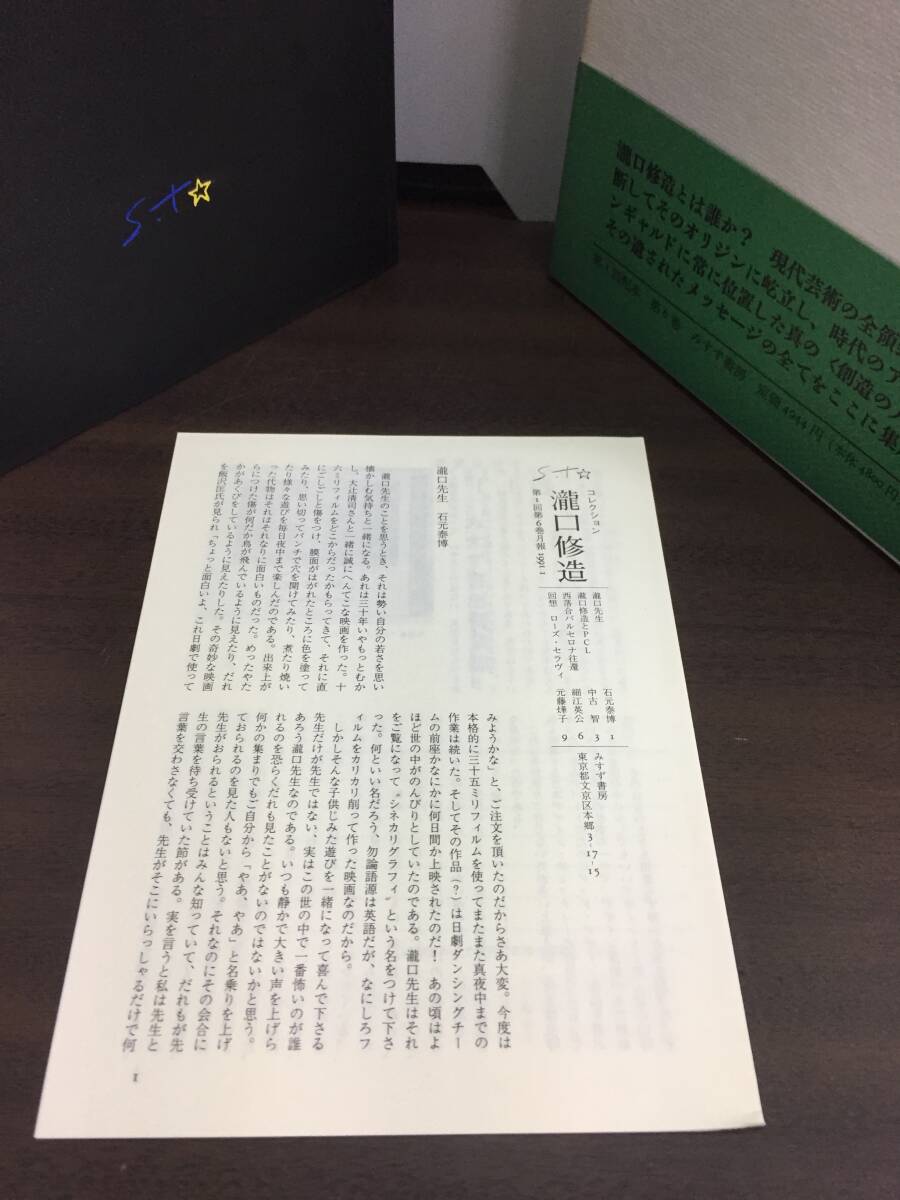 S.T☆
瀧口修造とは誰か? 現代芸術の全領
断してそのオリジンに屹立し、時代のア
ンギャルドに常に位置した真の〈創造の人
その遺されたメッセージの全てをここに集
第1回配本 第6巻 みすず書房 定価4944円(本体4800円
S.T☆
コレクション
瀧口修造
第1回第6巻月報 1991 1
瀧口先生 石元泰博 1
瀧口修造とPCL 中古 智 3
西落合バルセロナ往還 細江英公 6
回想 ローズ・セラヴィ 元藤燁子 9
みすず書房
東京都文京区本郷3-17-15
瀧口先生 石元泰博
瀧口先生のことを思うとき、それは勢い自分の若さを思い
懐かしむ気持ちと一緒になる。あれは三十年いやもっとむか
し。大辻清司さんと一緒に誠にへんてこな映画を作った。十
六ミリフィルムをどこからだったかもらってきて、それに直
にごしごしと傷をつけ、膜面がはがれたところに色を塗って
みたり、思い切ってパンチで穴を開けてみたり、煮たり焼い
たり様々な遊びを毎日夜中まで楽しんだのである。出来上が
った代物はそれはそれなりに面白いものだった。めったやた
らにつけた傷が何だか鳥が飛んでいるように見えたり、だれ
かがあくびをしているように見えたりした。その奇妙な映画
を飯沢匡氏が見られ「ちょっと面白いよ、これ日劇で使って
みようかな」と、ご注文を頂いたのだからさあ大変。今度は
本格的に三十五ミリフィルムを使ってまたまた真夜中までの
作業は続いた。そしてその作品(?)は日劇ダンシングチー
ムの前座かなにかに何日間か上映されたのだ! あの頃はよ
ほど世の中がのんびりとしていたのである。瀧口先生はそれ
をご覧になって〝シネカリグラフィ〟という名をつけて下さ
った。何といい名だろう、勿論語源は英語だが、なにしろフ
ィルムをカリカリ削って作った映画なのだから。
しかしそんな子供じみた遊びを一緒になって喜んで下さる
先生だけが先生ではない、実はこの世の中で一番怖いのが誰
あろう瀧口先生なのである。いつも静かで大きい声を上げら
れるのを恐らくだれも見たことがないのではないかと思う。
何かの集まりでもご自分から「やあ、やあ」と名乗りを上げ
ておられるのを見た人もないと思う。それなのにその会合に
先生がおられるということはみんな知っていて、だれもが先
生の言葉を待ち受けていた節がある。実を言うと私は先生と
言葉を交わさなくても、先生がそこにいらっしゃるだけで何
1